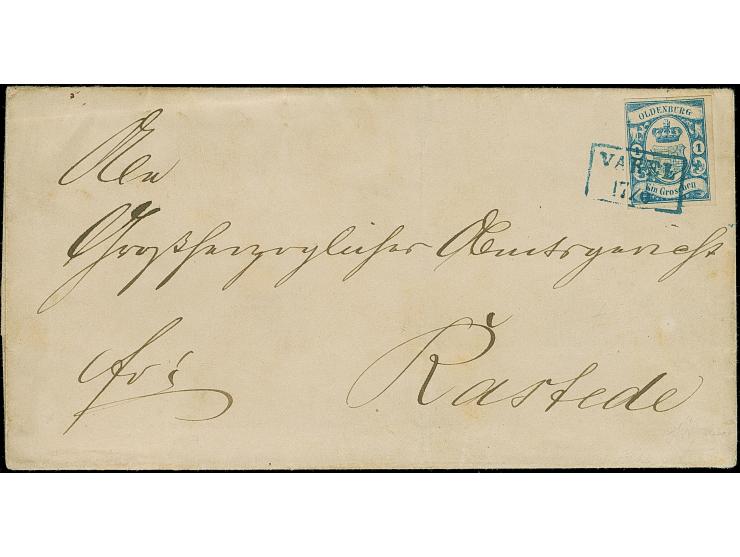 OLDENBURG
1 1
Ein Groschen
VAREL
17/6
An
Großherzogliches Amtsgericht
frei
Rastede